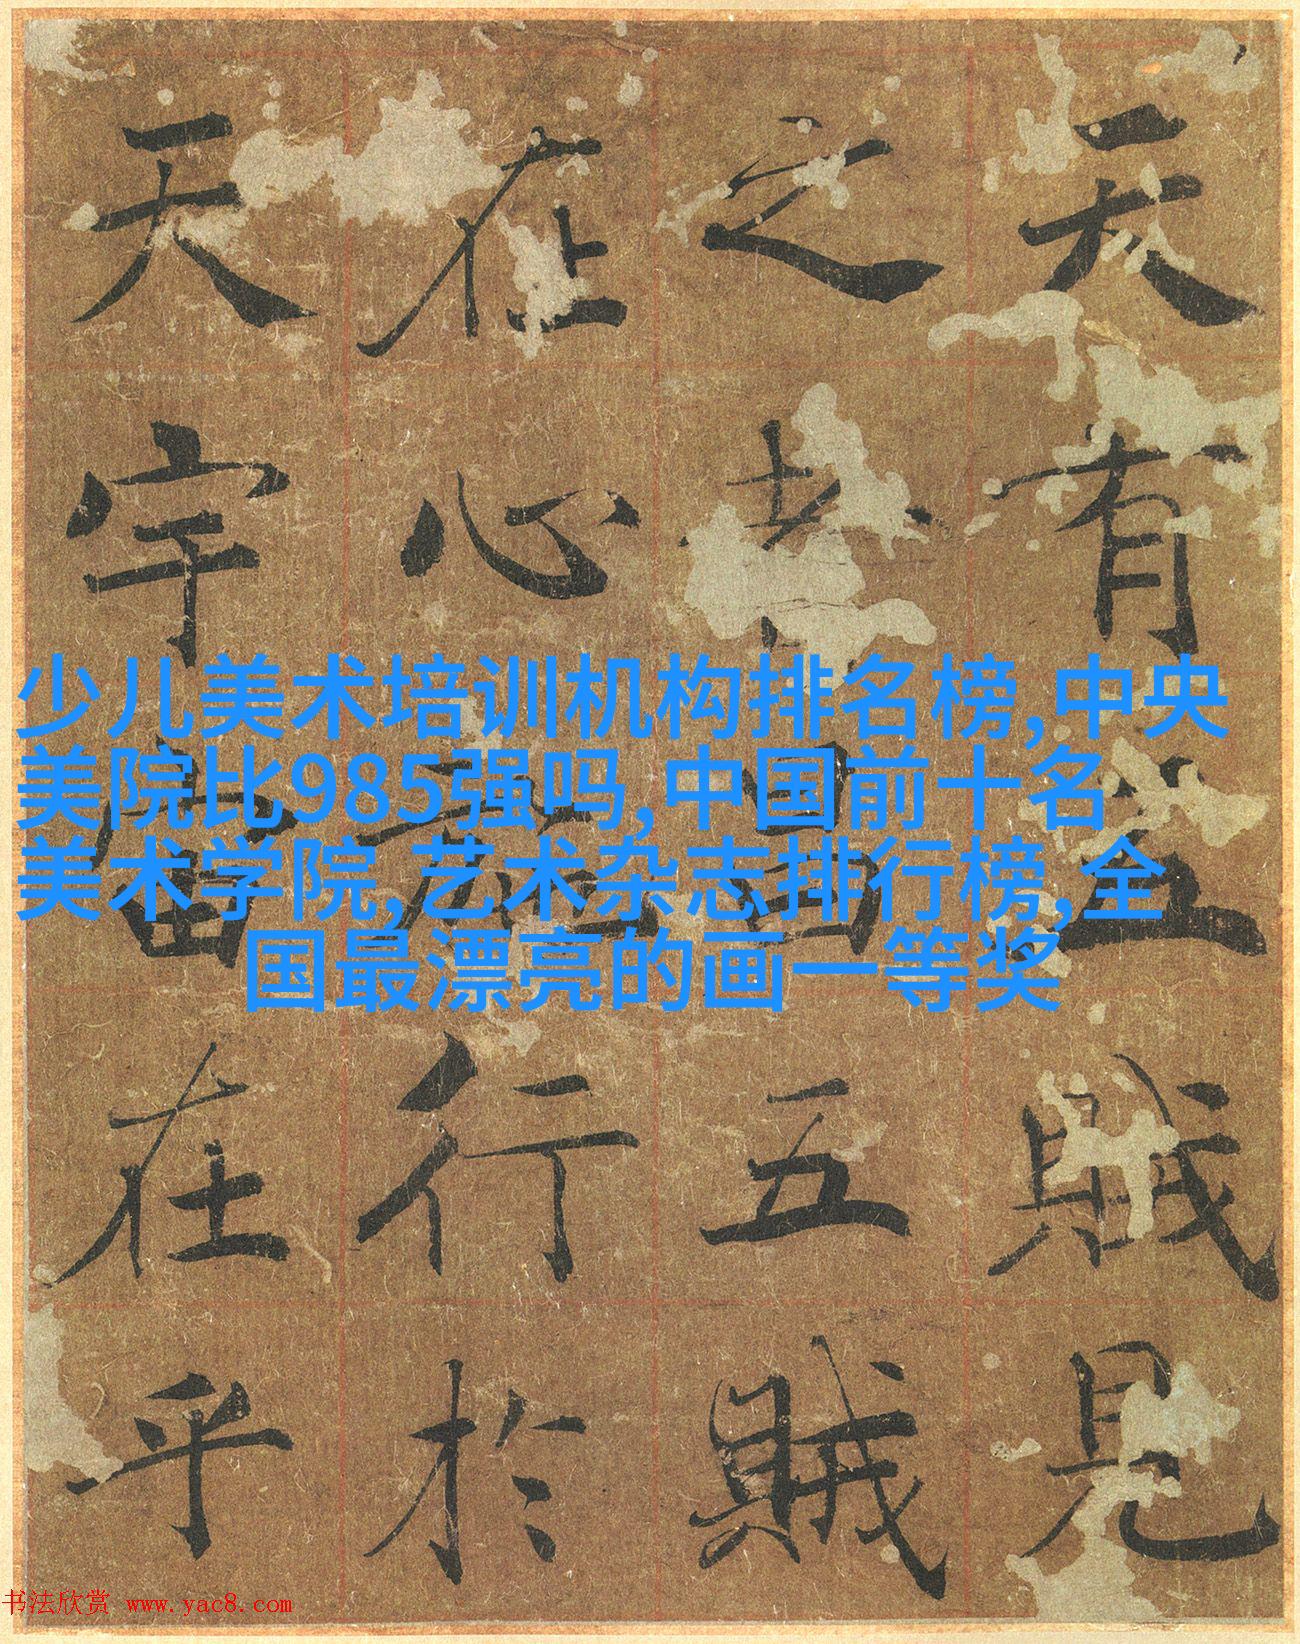 天有五賊見
之者昌五賊
在心施行於
天宇宙在乎
少儿美术培训机构排名榜,中央
美院比985强吗,中国前十名
美术学院,艺术杂志排行榜,全
国最漂亮的画一等奖
书法欣赏 www.yac8.com